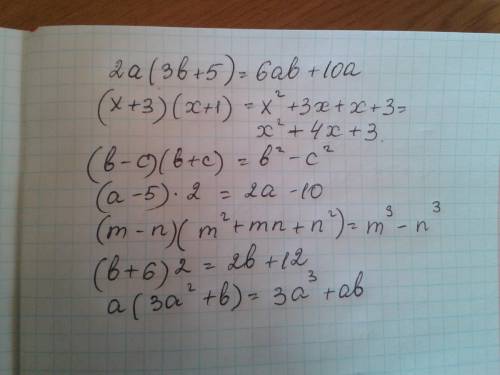 2a(3b+5)=6ab+10a
(x+3)(x+1)=x²+3x+x+3=
x²+4x+3
(b-c)(b+c)=b²-c²
(a-5)·2=2a-10
(m-n)(m²+mn+n²)=m³-n³
(b+6)2=2b+12
a(3a²+b)=3a³+ab